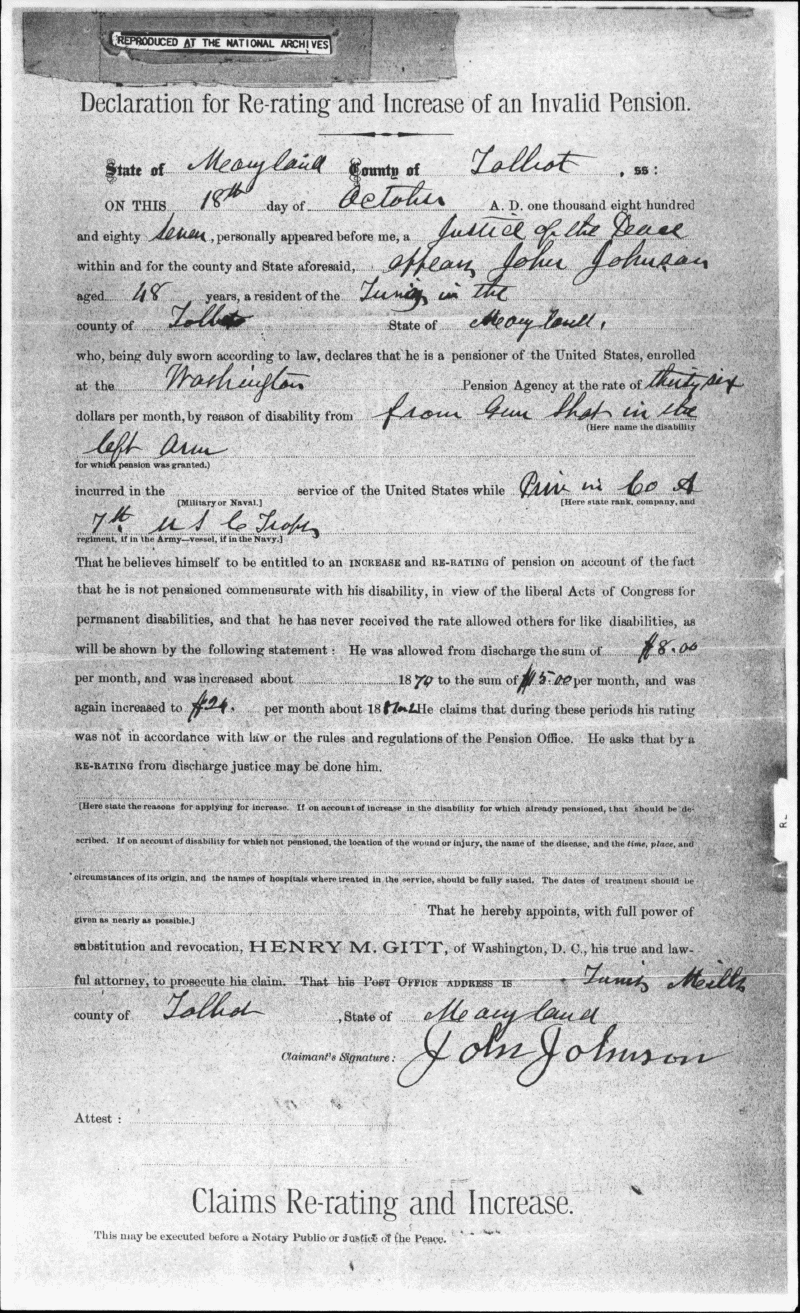 REPRODUCED AT THE NATIONAL ARCHIVES
Declaration for Re-rating and Increase of an Invalid Pension.
State of Maryland County of Talbot, ss:
ON THIS 18th day of October A. D. one thousand eight hundred
and eighty seven, personally appeared before me, a Justice of the Peace
within and for the county and State aforesaid, appears John Johnson
aged 48 years, a resident of the Tunis in the
county of Talbot State of Maryland,
who, being duly sworn according to law, declares that he is a pensioner of the United States, enrolled
at the Washington Pension Agency at the rate of thirty six
dollars per month, by reason of disability from from Gun Shot in the
(Here name the disability
left arm
for which pension was granted.)
incurred in the service of the United States while Priv in Co A
[Military or Naval.] [Here state rank, company, and
7th U S C Troops
regiment, if in the Army—vessel, if in the Navy.]
That he believes himself to be entitled to an INCREASE and RE-RATING of pension on account of the fact
that he is not pensioned commensurate with his disability, in view of the liberal Acts of Congress for
permanent disabilities, and that he has never received the rate allowed others for like disabilities, as
will be shown by the following statement: He was allowed from discharge the sum of $8.00
per month, and was increased about 1870 to the sum of $15.00 per month, and was
again increased to $24. per month about 18 He claims that during these periods his rating
was not in accordance with law or the rules and regulations of the Pension Office. He asks that by a
RE-RATING from discharge justice may be done him.
[Here state the reasons for applying for increase. If on account of increase in the disability for which already pensioned, that should be de-
scribed. If on account of disability for which not pensioned, the location of the wound or injury, the name of the disease, and the time, place, and
circumstances of its origin, and the names of hospitals where treated in the service, should be fully stated. The dates of treatment should be
given as nearly as possible.] That he hereby appoints, with full power of
substitution and revocation, HENRY M. GITT, of Washington, D. C., his true and law-
ful attorney, to prosecute his claim. That his POST OFFICE ADDRESS IS Tunis Mills
county of Talbot, State of Maryland
Claimant's Signature: John Johnson
Attest:
Claims Re-rating and Increase.
This may be executed before a Notary Public or Justice of the Peace.